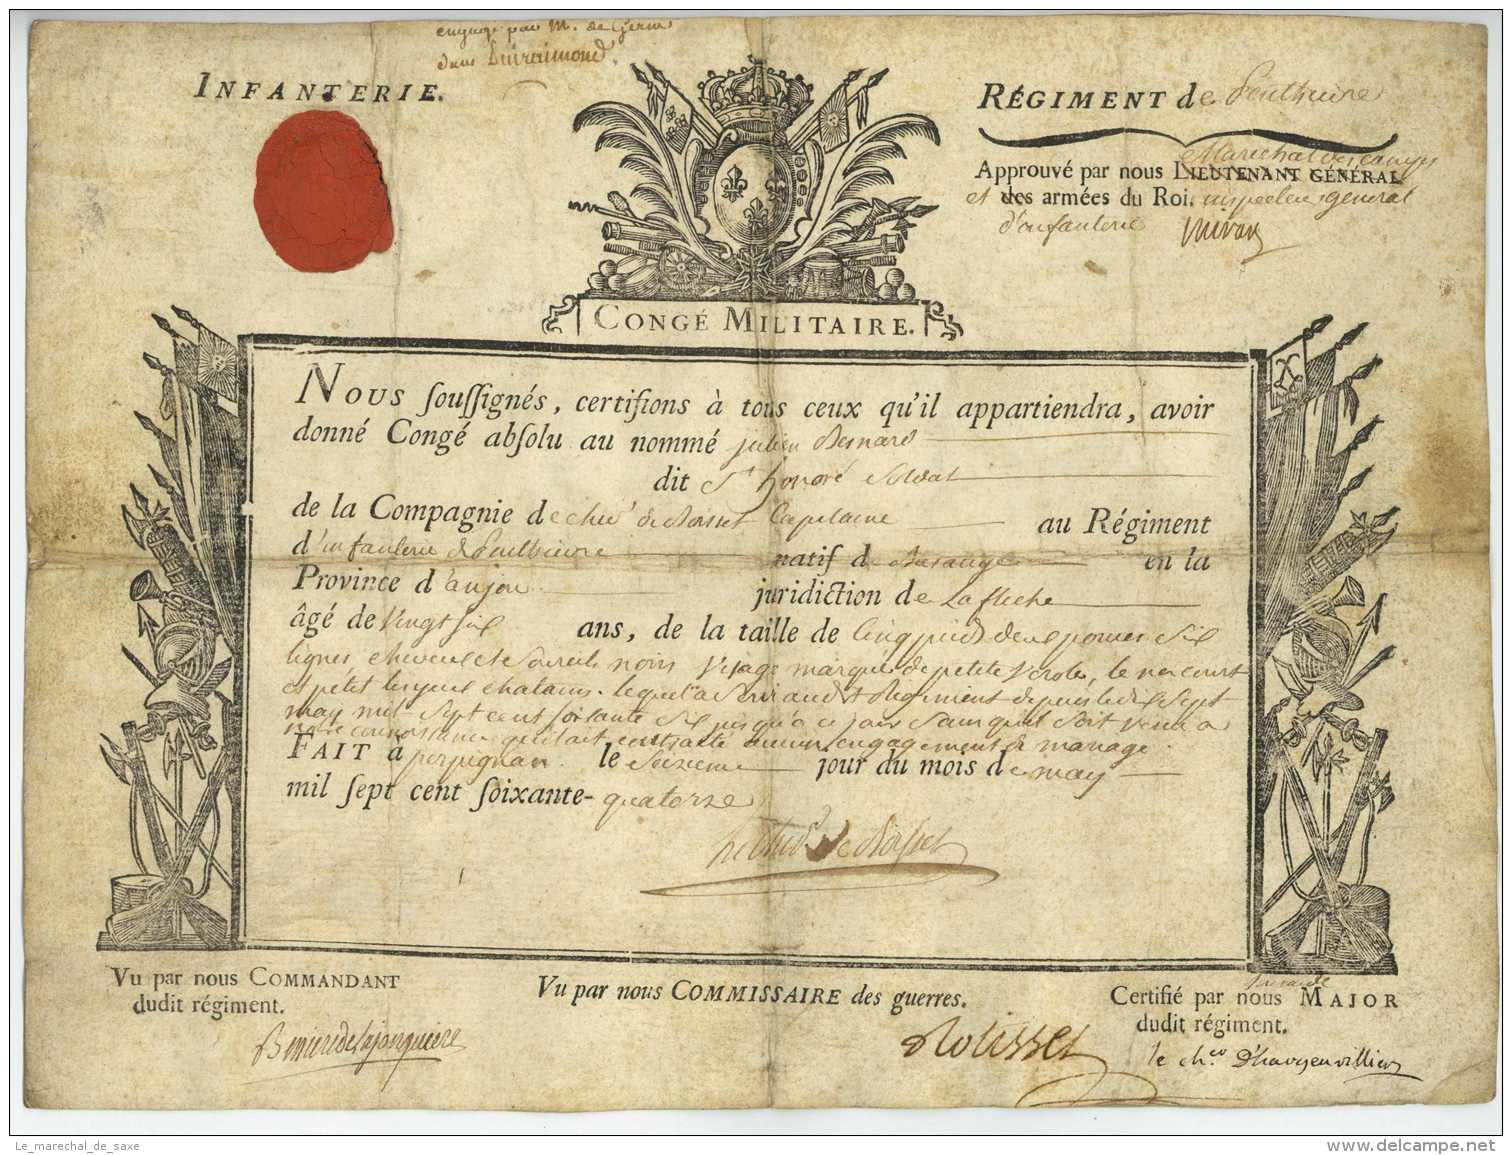 engagé par M. de
dans
INFANTERIE.
RÉGIMENT de Penthievre
Marechal des camps
Approuvé par nous LIEUTENANT GÉNÉRAL
et des armées du Roi. inspecteur general
d'infanterie
CONGÉ MILITAIRE.
Nous ſouſſignés, certifions à tous ceux qu'il appartiendra, avoir
donné Congé abſolu au nommé julien Besnard
dit St honoré Soldat
de la Compagnie de chier de Roisset Capitaine au Régiment
d'infanterie de Penthievre natif de en la
Province d'anjou juridiction de Lafleche
âgé de Vingt six ans, de la taille de Cinq pieds deux pouces six
lignes, cheveux et Sourcils noirs Visage marqué de petite Verole, le nez court
et petit les yeux chatains. lequel a Servi audit Regiment depuis le dix Sept
may mil Sept cent soixante Six jusqu'a ce jour Sans qu'il Soit Venu a
notre connoissance qu'il ait contracté aucun engagement de mariage.
FAIT à perpignan. le Seizieme jour du mois de may
mil ſept cent ſoixante-quatorze
le chier de Roisset
Vu par nous COMMANDANT
dudit régiment.
Vu par nous COMMISSAIRE des guerres.
Certifié par nous MAJOR
dudit régiment.
Rolisset
le cher. D'hargenvillier
Le_marechal_de_saxe
www.delcampe.net